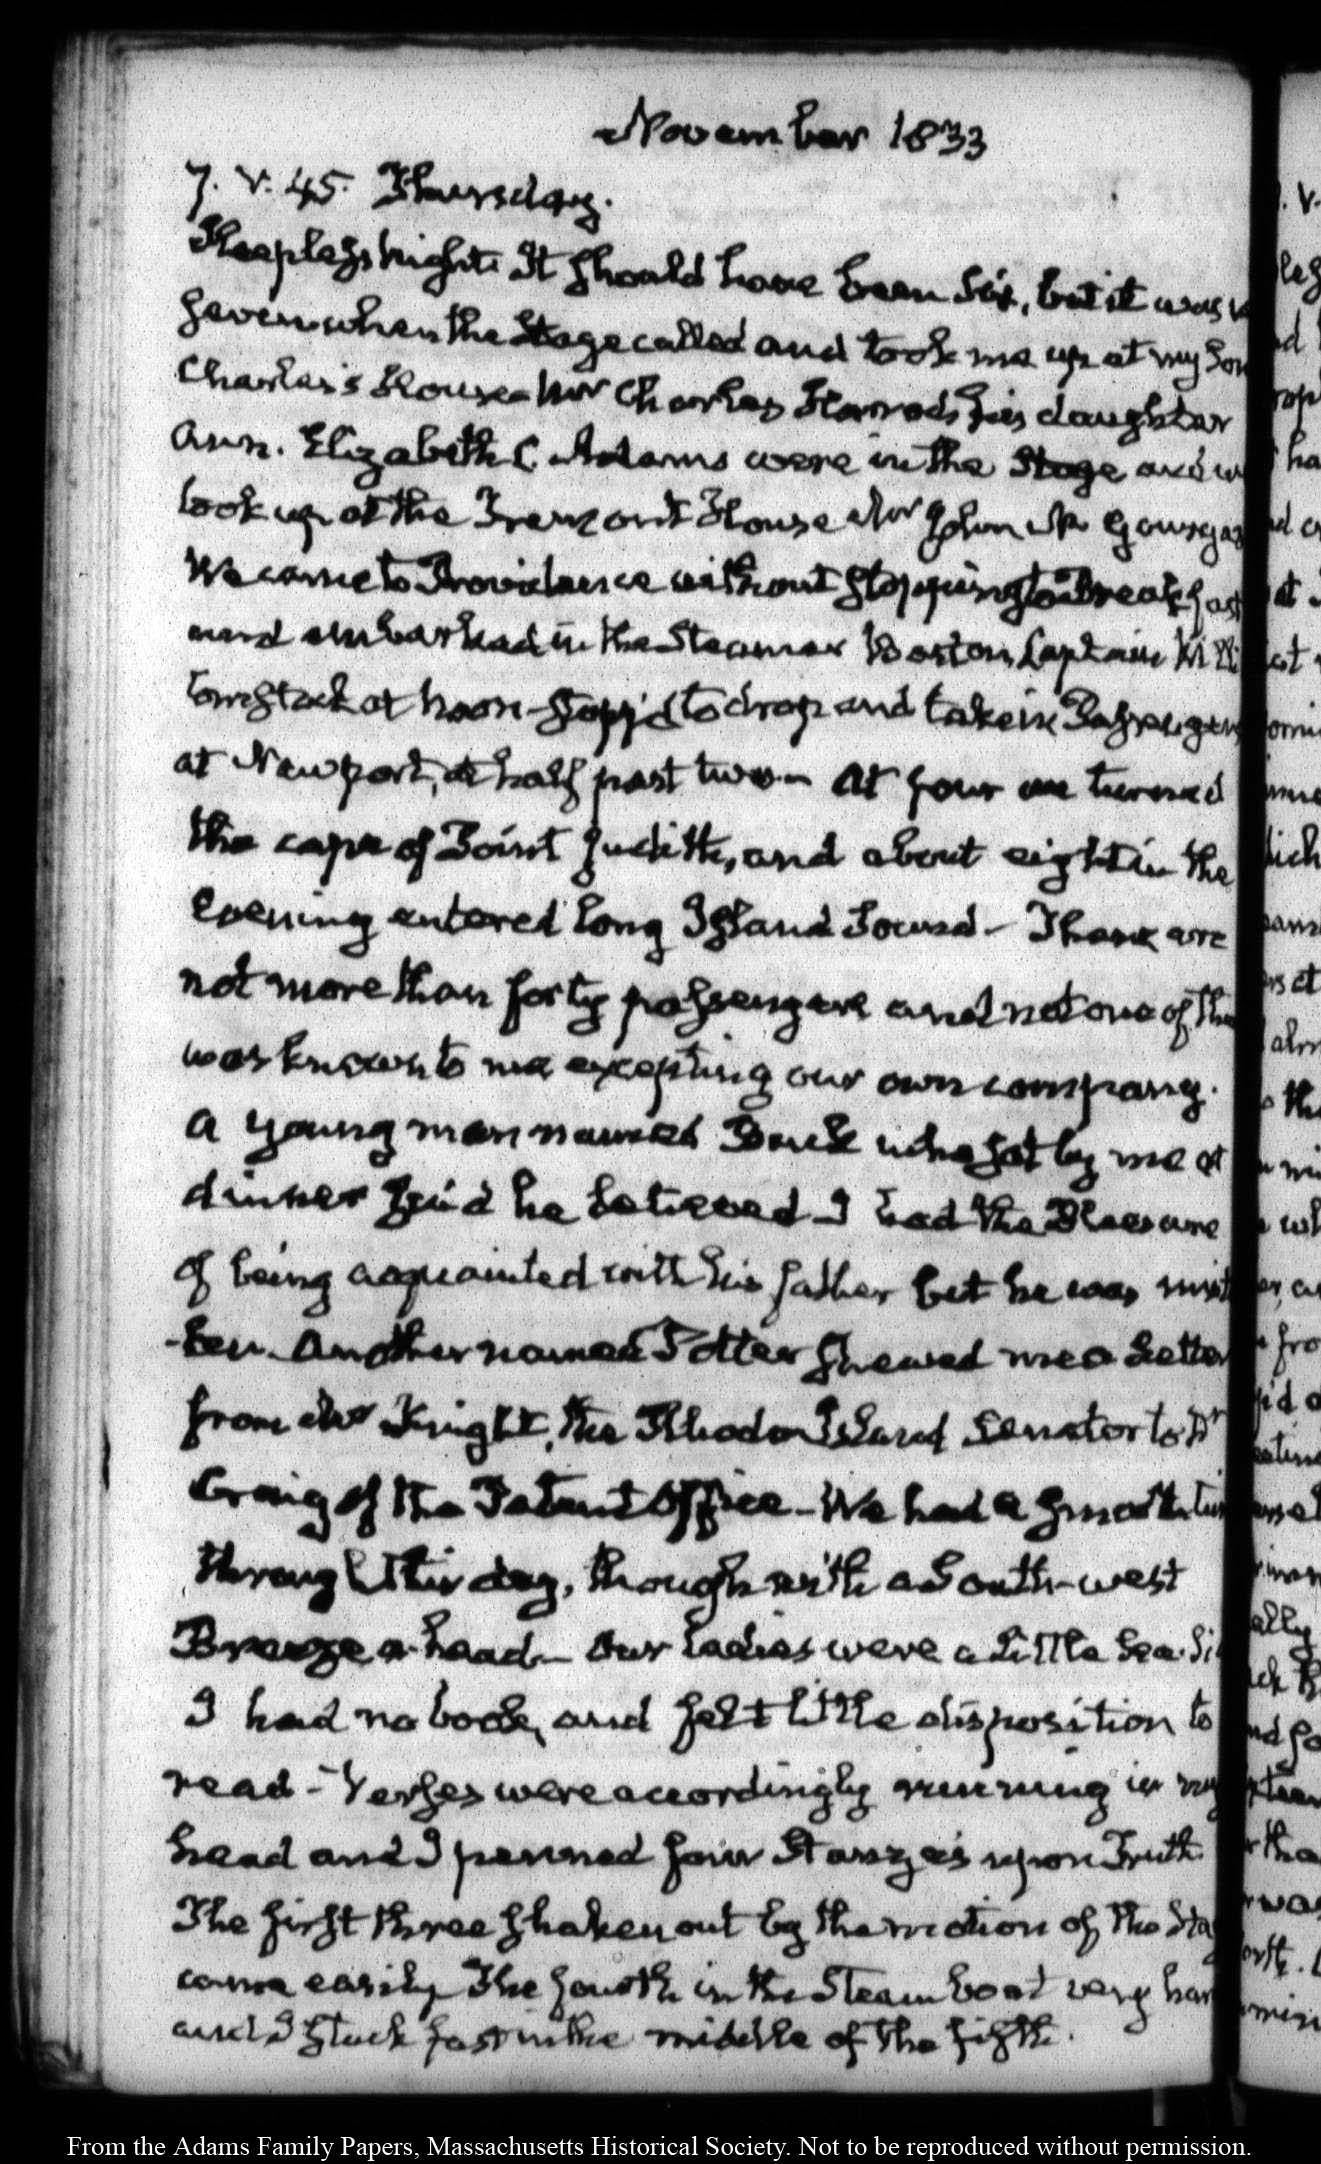 November 1833
7. V. 45. Thursday.
Sleepless night. It should have been Six, but it was
seven when the Stage called and took me up at my Son
Charles's House. Mr Charles Harrod, his daughter
Ann. Elizabeth C. Adams were in the Stage and we
took up at the Tremont House Mr John
We came to Providence without stopping to Breakfast
and embarked in the Steamer Boston, Captain
Comstock at noon. Stopp'd to drop and take in Passengers
at Newport, at half past two. At four we turned
the cape of Point Judith, and about eight in the
Evening entered Long Island Sound— There are
not more than forty passengers and not one of them
was known to me excepting our own company.
A young man named Buck who sat by me at
dinner said he believed I had the Pleasure
of being acquainted with his father but he was mist
-ken. Another named Potter shewed me a Letter
from Mr Knight, the Rhode Island Senator to Dr
Craig of the Patent Office— We had a smooth
through this day, though with a South-west
Breeze a-head— Our Ladies were a little Sea-Si
I had no book, and felt little disposition to
read— Verses were accordingly running in my
head and I penned four Stanzas upon Truth
The first three shaken out by the motion of the Sta
came easily. The fourth in the Steam boat very har
and I stuck fast in the middle of the fifth.
From the Adams Family Papers, Massachusetts Historical Society. Not to be reproduced without permission.